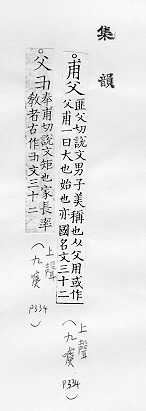 集韻
。甫父
匪父切說文男子美稱也从父用或作
父甫一曰大也始也亦國名文三十二
(上聲 九麌 P334)
。父
奉甫切說文矩也家長率
教者古作文三十二
(上聲 九麌 P334)